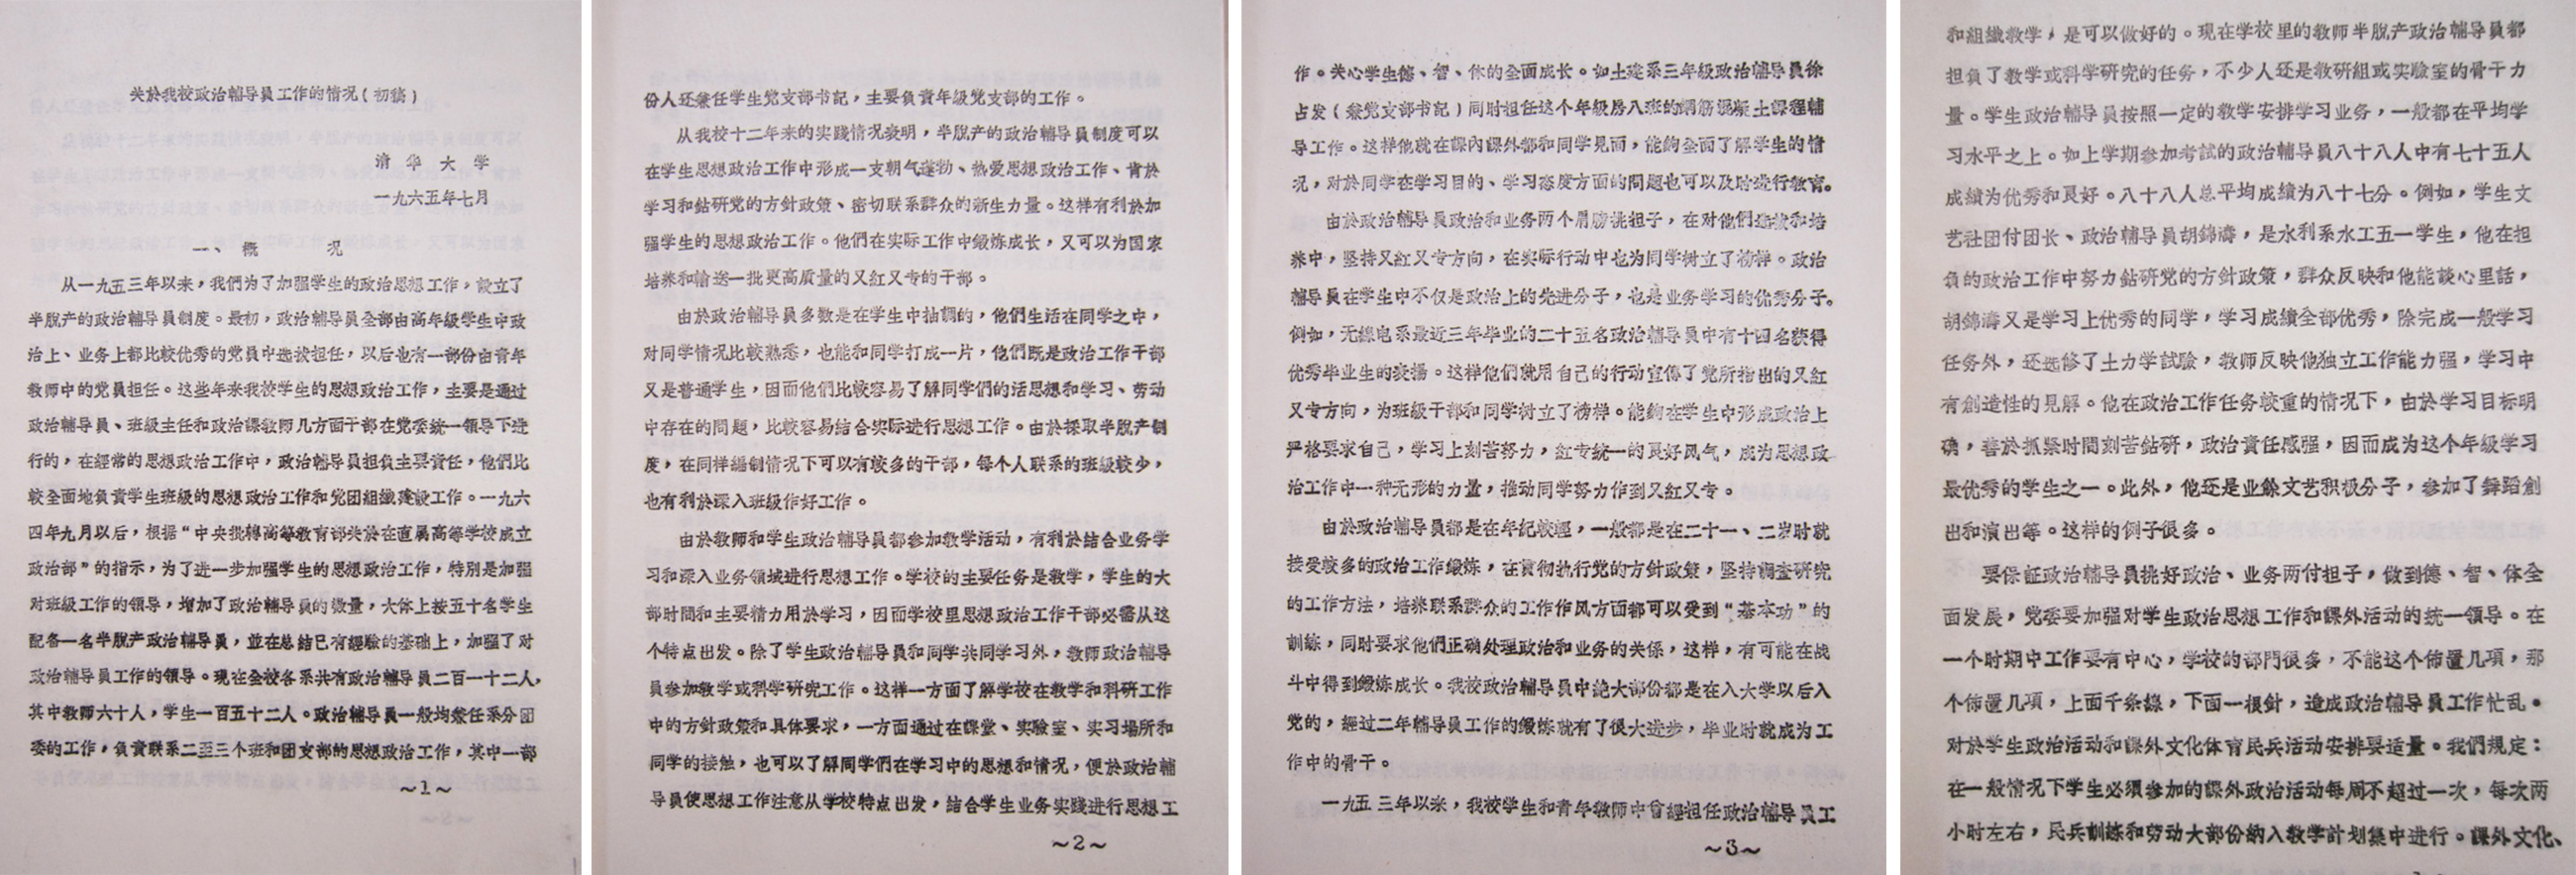 关於我校政治輔导員工作的情况(初稿)
清华大学
一九六五年七月
一、概况
从一九五三年以来，我們为了加强学生的政治思想工作，設立了
半脫产的政治輔导員制度。最初，政治輔导員全部由高年級学生中政
治上、业务上都比較优秀的党員中选拔担任，以后也有一部份由青年
教师中的党員担任。这些年来我校学生的思想政治工作，主要是通过
政治輔导員、班級主任和政治課教师几方面干部在党委統一領导下进
行的，在經常的思想政治工作中，政治輔导員担負主要責任，他們比
較全面地負責学生班級的思想政治工作和党团組織建設工作。一九六
四年九月以后，根据“中央批轉高等教育部关於在直属高等学校成立
政治部”的指示，为了进一步加强学生的思想政治工作，特別是加强
对班級工作的領导，增加了政治輔导員的数量，大体上按五十名学生
配备一名半脫产政治輔导員，並在总結已有經驗的基础上，加强了对
政治輔导員工作的領导。現在全校各系共有政治輔导員二百一十二人，
其中教师六十人，学生一百五十二人。政治輔导員一般均兼任系分团
委的工作，負責联系二至三个班和团支部的思想政治工作，其中一部
～1～
份人还兼任学生党支部书記，主要負責年級党支部的工作。
从我校十二年来的实踐情况表明，半脫产的政治輔导員制度可以
在学生思想政治工作中形成一支朝气蓬勃、热爱思想政治工作、肯於
学习和鉆研党的方針政策、密切联系群众的新生力量。这样有利於加
强学生的思想政治工作。他們在实际工作中鍛炼成长，又可以为国家
培养和輸送一批更高质量的又紅又专的干部。
由於政治輔导員多数是在学生中抽調的，他們生活在同学之中，
对同学情况比較熟悉，也能和同学打成一片，他們既是政治工作干部
又是普通学生，因而他們比較容易了解同学們的活思想和学习、劳动
中存在的問題，比較容易結合实际进行思想工作。由於採取半脫产制
度，在同样編制情况下可以有較多的干部，每个人联系的班級較少，
也有利於深入班級作好工作。
由於教师和学生政治輔导員都参加教学活动，有利於結合业务学
习和深入业务領域进行思想工作。学校的主要任务是教学，学生的大
部时間和主要精力用於学习，因而学校里思想政治工作干部必需从这
个特点出发。除了学生政治輔导員和同学共同学习外，教师政治輔导
員参加教学或科学研究工作。这样一方面了解学校在教学和科研工作
中的方針政策和具体要求，一方面通过在課堂、实驗室、实习場所和
同学的接触，也可以了解同学們在学习中的思想和情况，便於政治輔
导員使思想工作注意从学校特点出发，結合学生业务实踐进行思想工
～2～
作。关心学生德、智、体的全面成长。如土建系三年級政治輔导員徐
占发(兼党支部书記)同时担任这个年級房八班的鋼筋混凝土課程輔
导工作。这样他就在課內課外都和同学見面，能夠全面了解学生的情
况，对於同学在学习目的、学习态度方面的問題也可以及时进行教育。
由於政治輔导員政治和业务两个肩膀挑担子，在对他們选拔和培
养中，坚持又紅又专方向，在实际行动中也为同学树立了榜样。政治
輔导員在学生中不仅是政治上的先进分子，也是业务学习的优秀分子。
例如，无綫电系最近三年毕业的二十五名政治輔导員中有十四名获得
优秀毕业生的表揚。这样他們就用自己的行动宣傳了党所指出的又紅
又专方向，为班級干部和同学树立了榜样。能夠在学生中形成政治上
严格要求自己，学习上刻苦努力，紅专統一的良好风气，成为思想政
治工作中一种无形的力量，推动同学努力作到又紅又专。
由於政治輔导員都是在年紀較輕，一般都是在二十一、二岁时就
接受較多的政治工作鍛炼，在貫彻执行党的方針政策，坚持調查研究
的工作方法，培养联系群众的工作作风方面都可以受到“基本功”的
訓練，同时要求他們正确处理政治和业务的关係，这样，有可能在战
斗中得到鍛炼成长。我校政治輔导員中絕大部份都是在入大学以后入
党的，經过二年輔导員工作的鍛炼就有了很大进步，毕业时就成为工
作中的骨干。
一九五三年以来，我校学生和青年教师中曾經担任政治輔导員工
～3～
和組織教学，是可以做好的。現在学校里的教师半脫产政治輔导員都
担負了教学或科学研究的任务，不少人还是教研組或实驗室的骨干力
量。学生政治輔导員按照一定的教学安排学习业务，一般都在平均学
习水平之上。如上学期参加考試的政治輔导員八十八人中有七十五人
成績为优秀和良好。八十八人总平均成績为八十七分。例如，学生文
艺社团付团长、政治輔导員胡錦濤，是水利系水工五一学生，他在担
負的政治工作中努力鉆研党的方針政策，群众反映和他能談心里話，
胡錦濤又是学习上优秀的同学，学习成績全部优秀，除完成一般学习
任务外，还选修了土力学試驗，教师反映他独立工作能力强，学习中
有創造性的見解。他在政治工作任务較重的情况下，由於学习目标明
确，善於抓紧时間刻苦鉆研，政治責任感强，因而成为这个年級学习
最优秀的学生之一。此外，他还是业餘文艺积极分子，参加了舞蹈創
出和演出等。这样的例子很多。
要保証政治輔导員挑好政治、业务两付担子，做到德、智、体全
面发展，党委要加强对学生政治思想工作和課外活动的統一領导。在
一个时期中工作要有中心，学校的部門很多，不能这个佈置几項，那
个佈置几項，上面千条綫，下面一根針，造成政治輔导員工作忙乱。
对於学生政治活动和課外文化体育民兵活动安排要适量。我們規定：
在一般情况下学生必須参加的課外政治活动每周不超过一次，每次两
小时左右，民兵訓練和劳动大部份納入教学計划集中进行。課外文化、